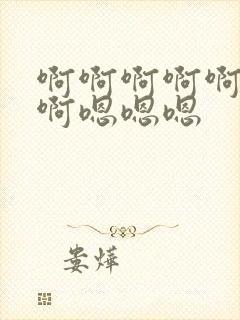 啊啊啊啊啊
啊嗯嗯嗯
娄烨